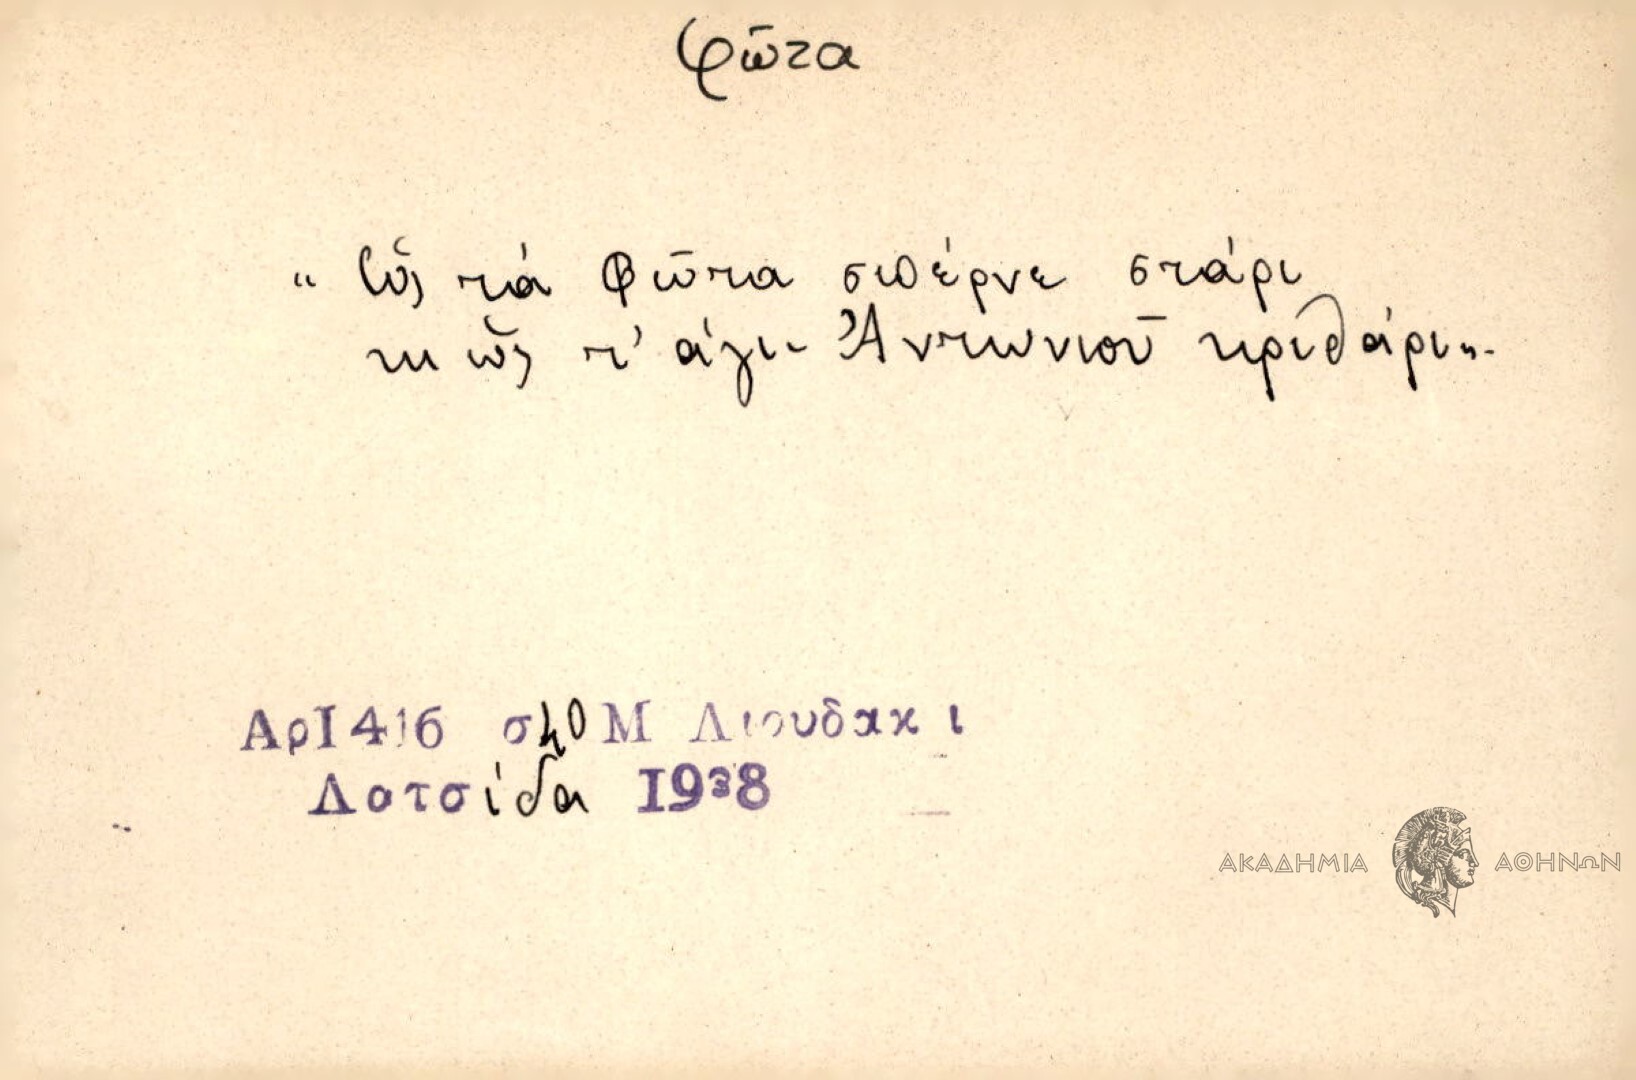 Φῶτα
“ Ὥς τά Φῶτα σπέρνε στάρι
κι ὥς τ' ἁγι- Ἀντωνιοῦ κριθάρι„.
Αρ 1416 σ 40 Μ Λιουδακι
Λατσίδα 1938
ΑΚΑΔΗΜΙΑ ΑΘΗΝΩΝ